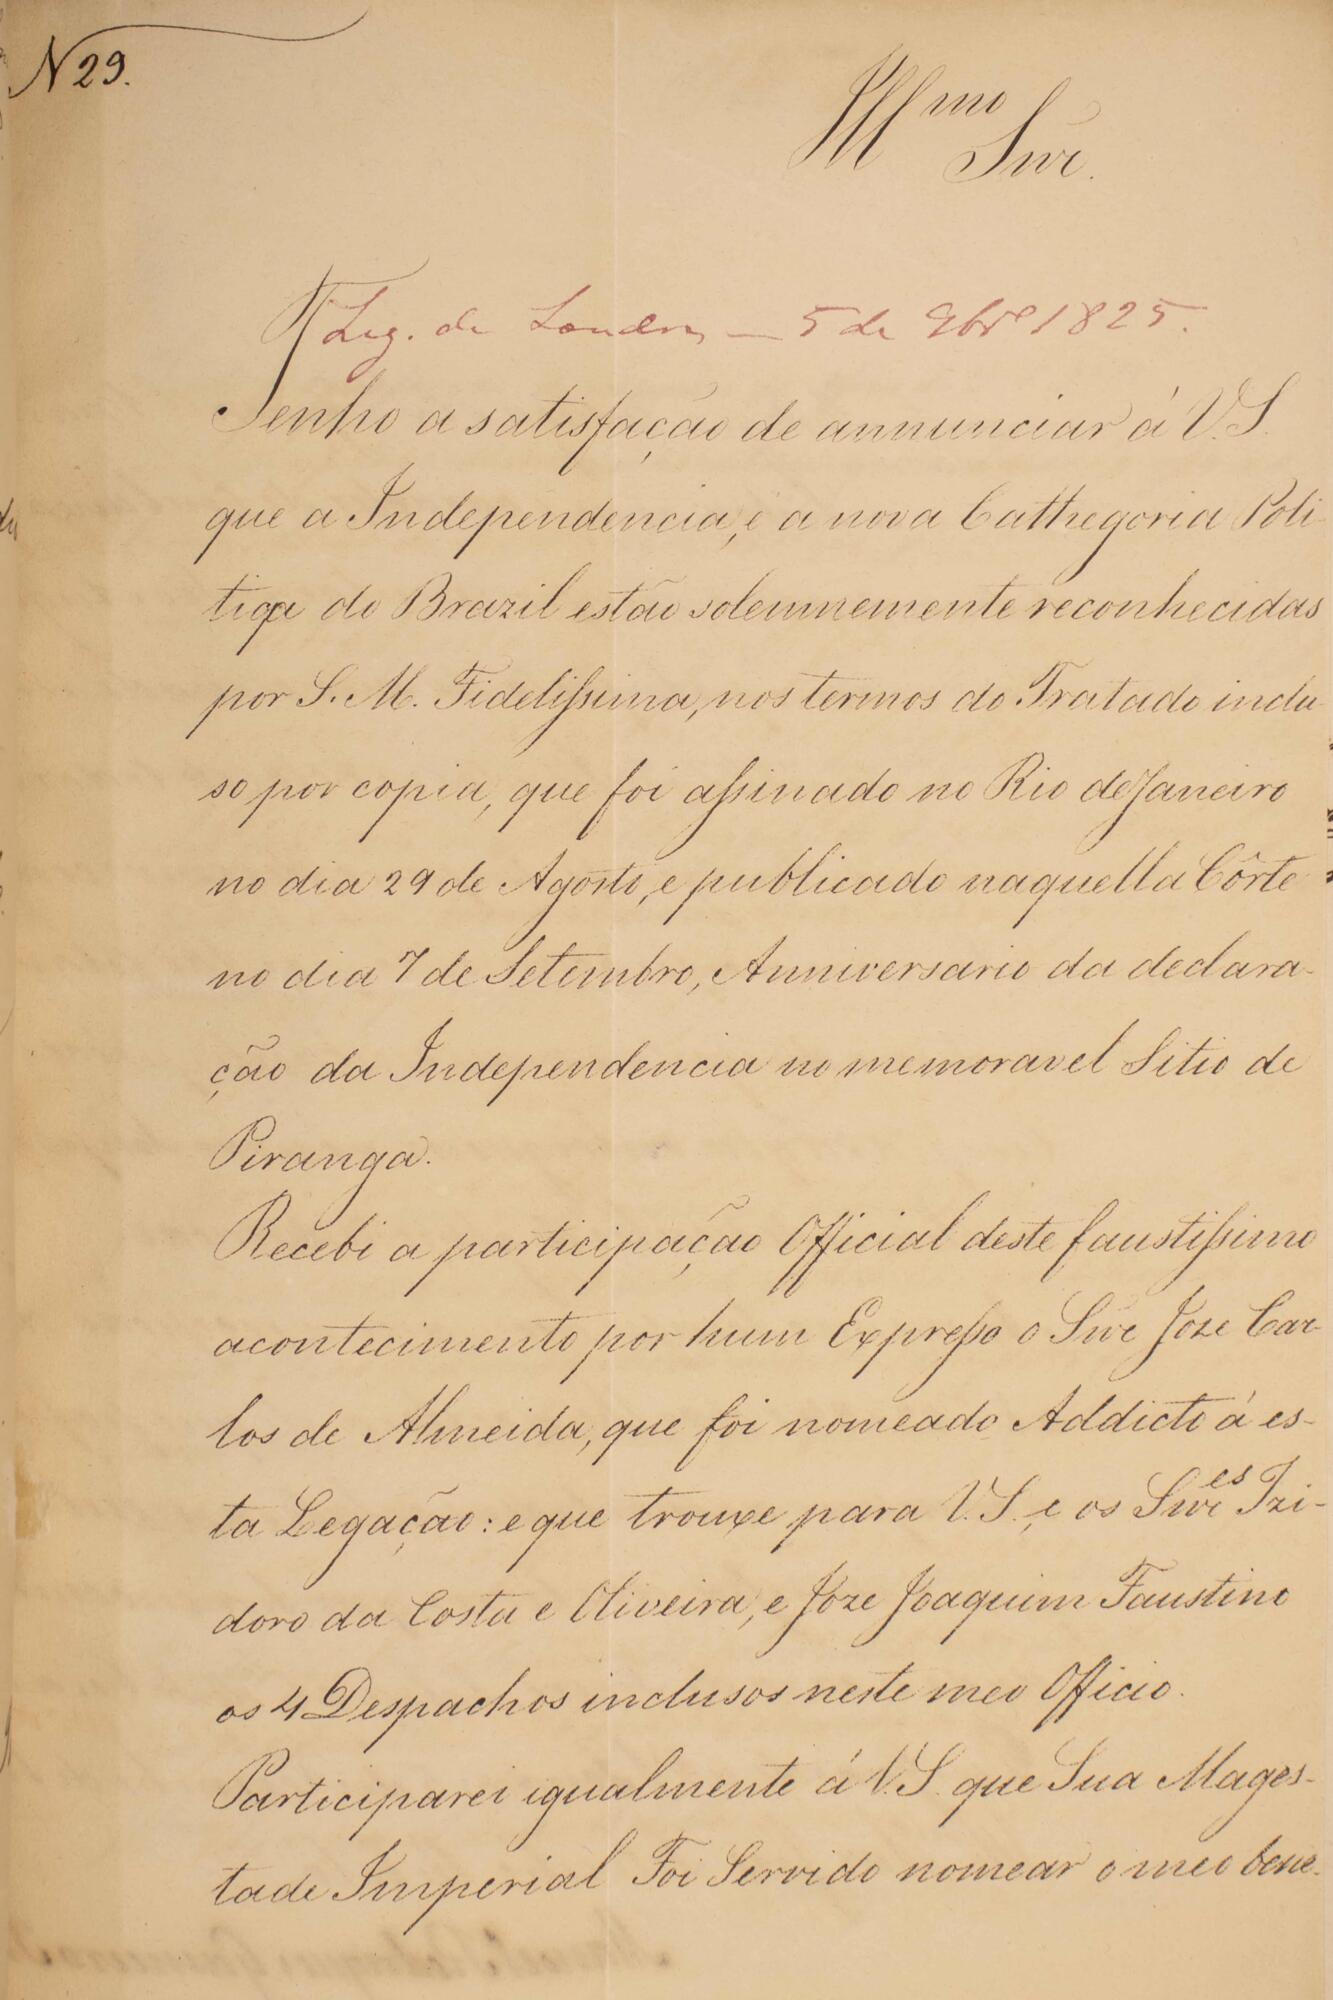 N 29.
Illmo
Snr.
Leg. de Londres — 5 de 9bro 1825.
Tenho a satisfação de annunciar á V.S.
que a Independencia, e a nova Cathegoria Poli-
tica do Brazil estão solemnemente reconhecidas
por S. M. Fidelissima, nos termos do Tratado inclu-
so por copia, que foi assinado no Rio de Janeiro
no dia 29 de Agosto, e publicado naquella Côrte
no dia 7 de Setembro, Anniversario da declara-
ção da Independencia no memoravel Sitio de
Piranga.
Recebi a participação Official deste faustissimo
acontecimento por hum Expresso o Snr Joze Car-
los de Almeida, que foi nomeado Addicto á es-
ta Legação: e que trouxe para V.S. e os Snres Izi-
doro da Costa e Oliveira, e Joze Joaquim Faustino
os 4 Despachos inclusos neste meo Officio.
Participarei igualmente á V.S. que Sua Mages-
tade Imperial Foi Servido nomear o meo bene-